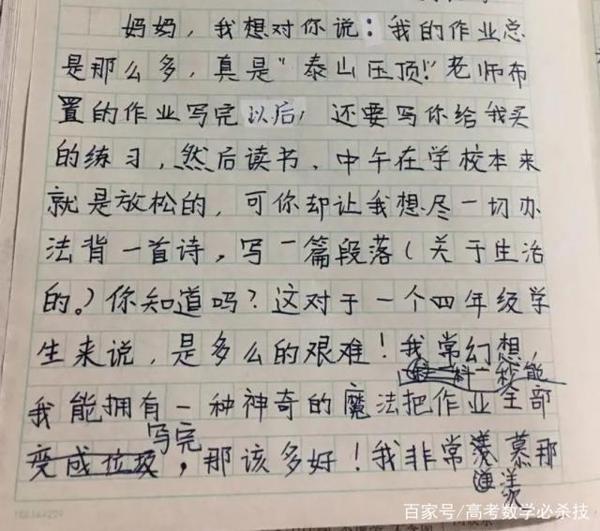 妈妈，我想对你说：我的作业总
是那么多，真是“泰山压顶！”老师布
置的作业写完以后，还要写你给我买
的练习，然后读书、中午在学校本来
就是放松的，可你却让我想尽一切办
法背一首诗，写一篇段落（关于生活
的。）你知道吗？这对于一个四年级学
生来说，是多么的艰难！我常幻想，
我能拥有一种神奇的魔法把作业全部
写完
变成垃圾，那该多好！我非常羡慕那
百家号/高考数学必杀技